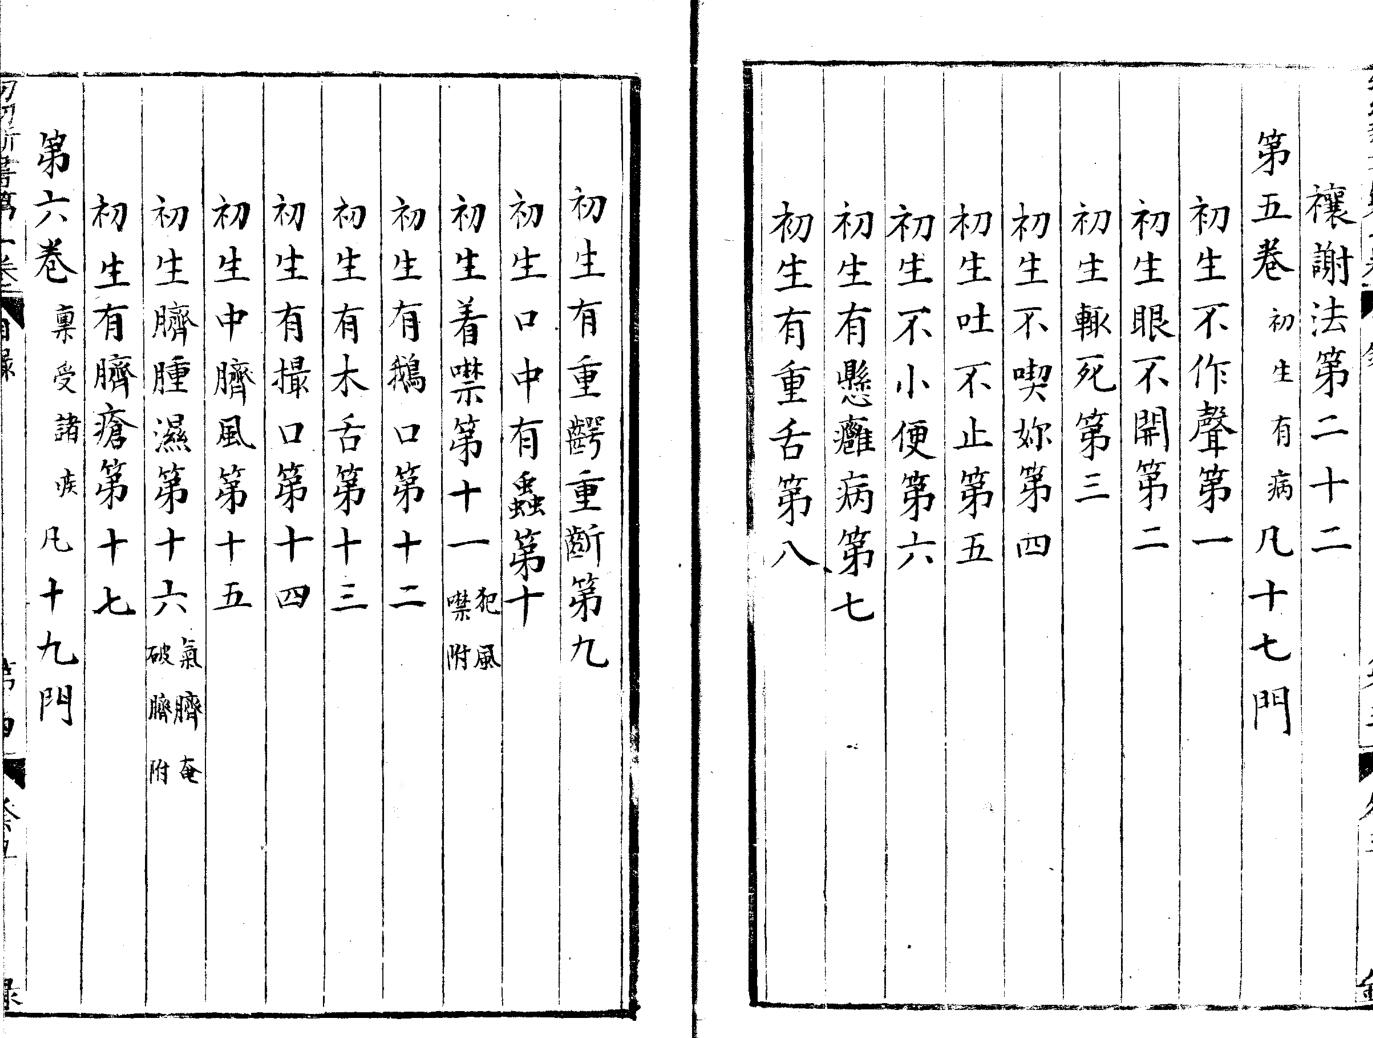 禳謝法第二十二
第五卷 初生有病 凡十七門
初生不作聲第一
初生眼不開第二
初生輙死第三
初生不喫妳第四
初生吐不止第五
初生不小便第六
初生有懸癰病第七
初生有重舌第八
初生有重齶重齗第九
初生口中有蟲第十
初生着噤第十一 犯風噤附
初生有鵝口第十二
初生有木舌第十三
初生有撮口第十四
初生中臍風第十五
初生臍腫濕第十六 氣臍奄破臍附
初生有臍瘡第十七
第六卷 禀受諸疾 凡十九門
目錄